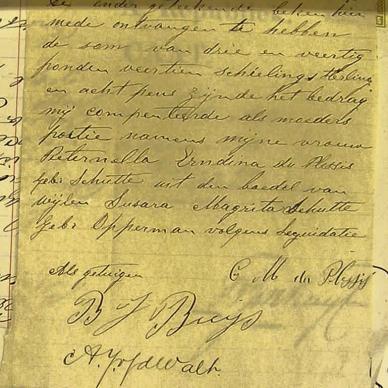 De ondergetekende beken hier
mede ontvangen te hebben
de som van drie en veertig
ponden veertien schelings sterling
en acht pens zijnde het bedrag
mij compenteerde als moeders
portie namens mijne vrouw
Pieternella Erndina du Plessis
geb: Schutte uit den boedel van
wijlen Susara Magrita Schutte
geb: Opperman volgens liquidatie
Als getuigen
C M du Plessis
B J Buijs